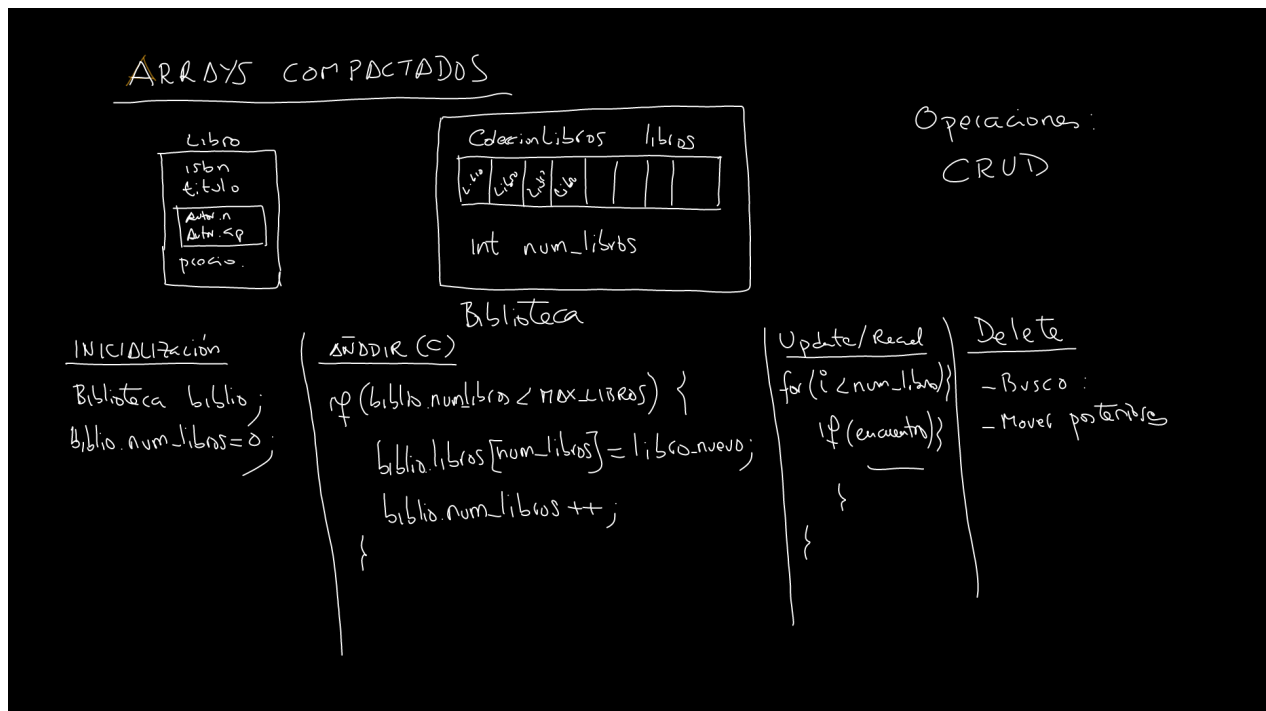 ARRAYS COMPACTADOS
Libro
isbn
titulo
Autor.n
Autor.ap
precio.
ColeccionLibros libros
Libro Libro Libro Libro
Int num_libros
Biblioteca
Operaciones:
CRUD
INICIALIZACIÓN
Biblioteca biblio;
biblio.num_libros=0;
AÑADIR (C)
if (biblio.num_libros < MAX_LIBROS) {
biblio.libros[num_libros] = libro_nuevo;
biblio.num_libros ++;
}
Update/Read
for (i < num_libro){
if (encuentro){
}
}
Delete
- Busco:
- Mover posteriores